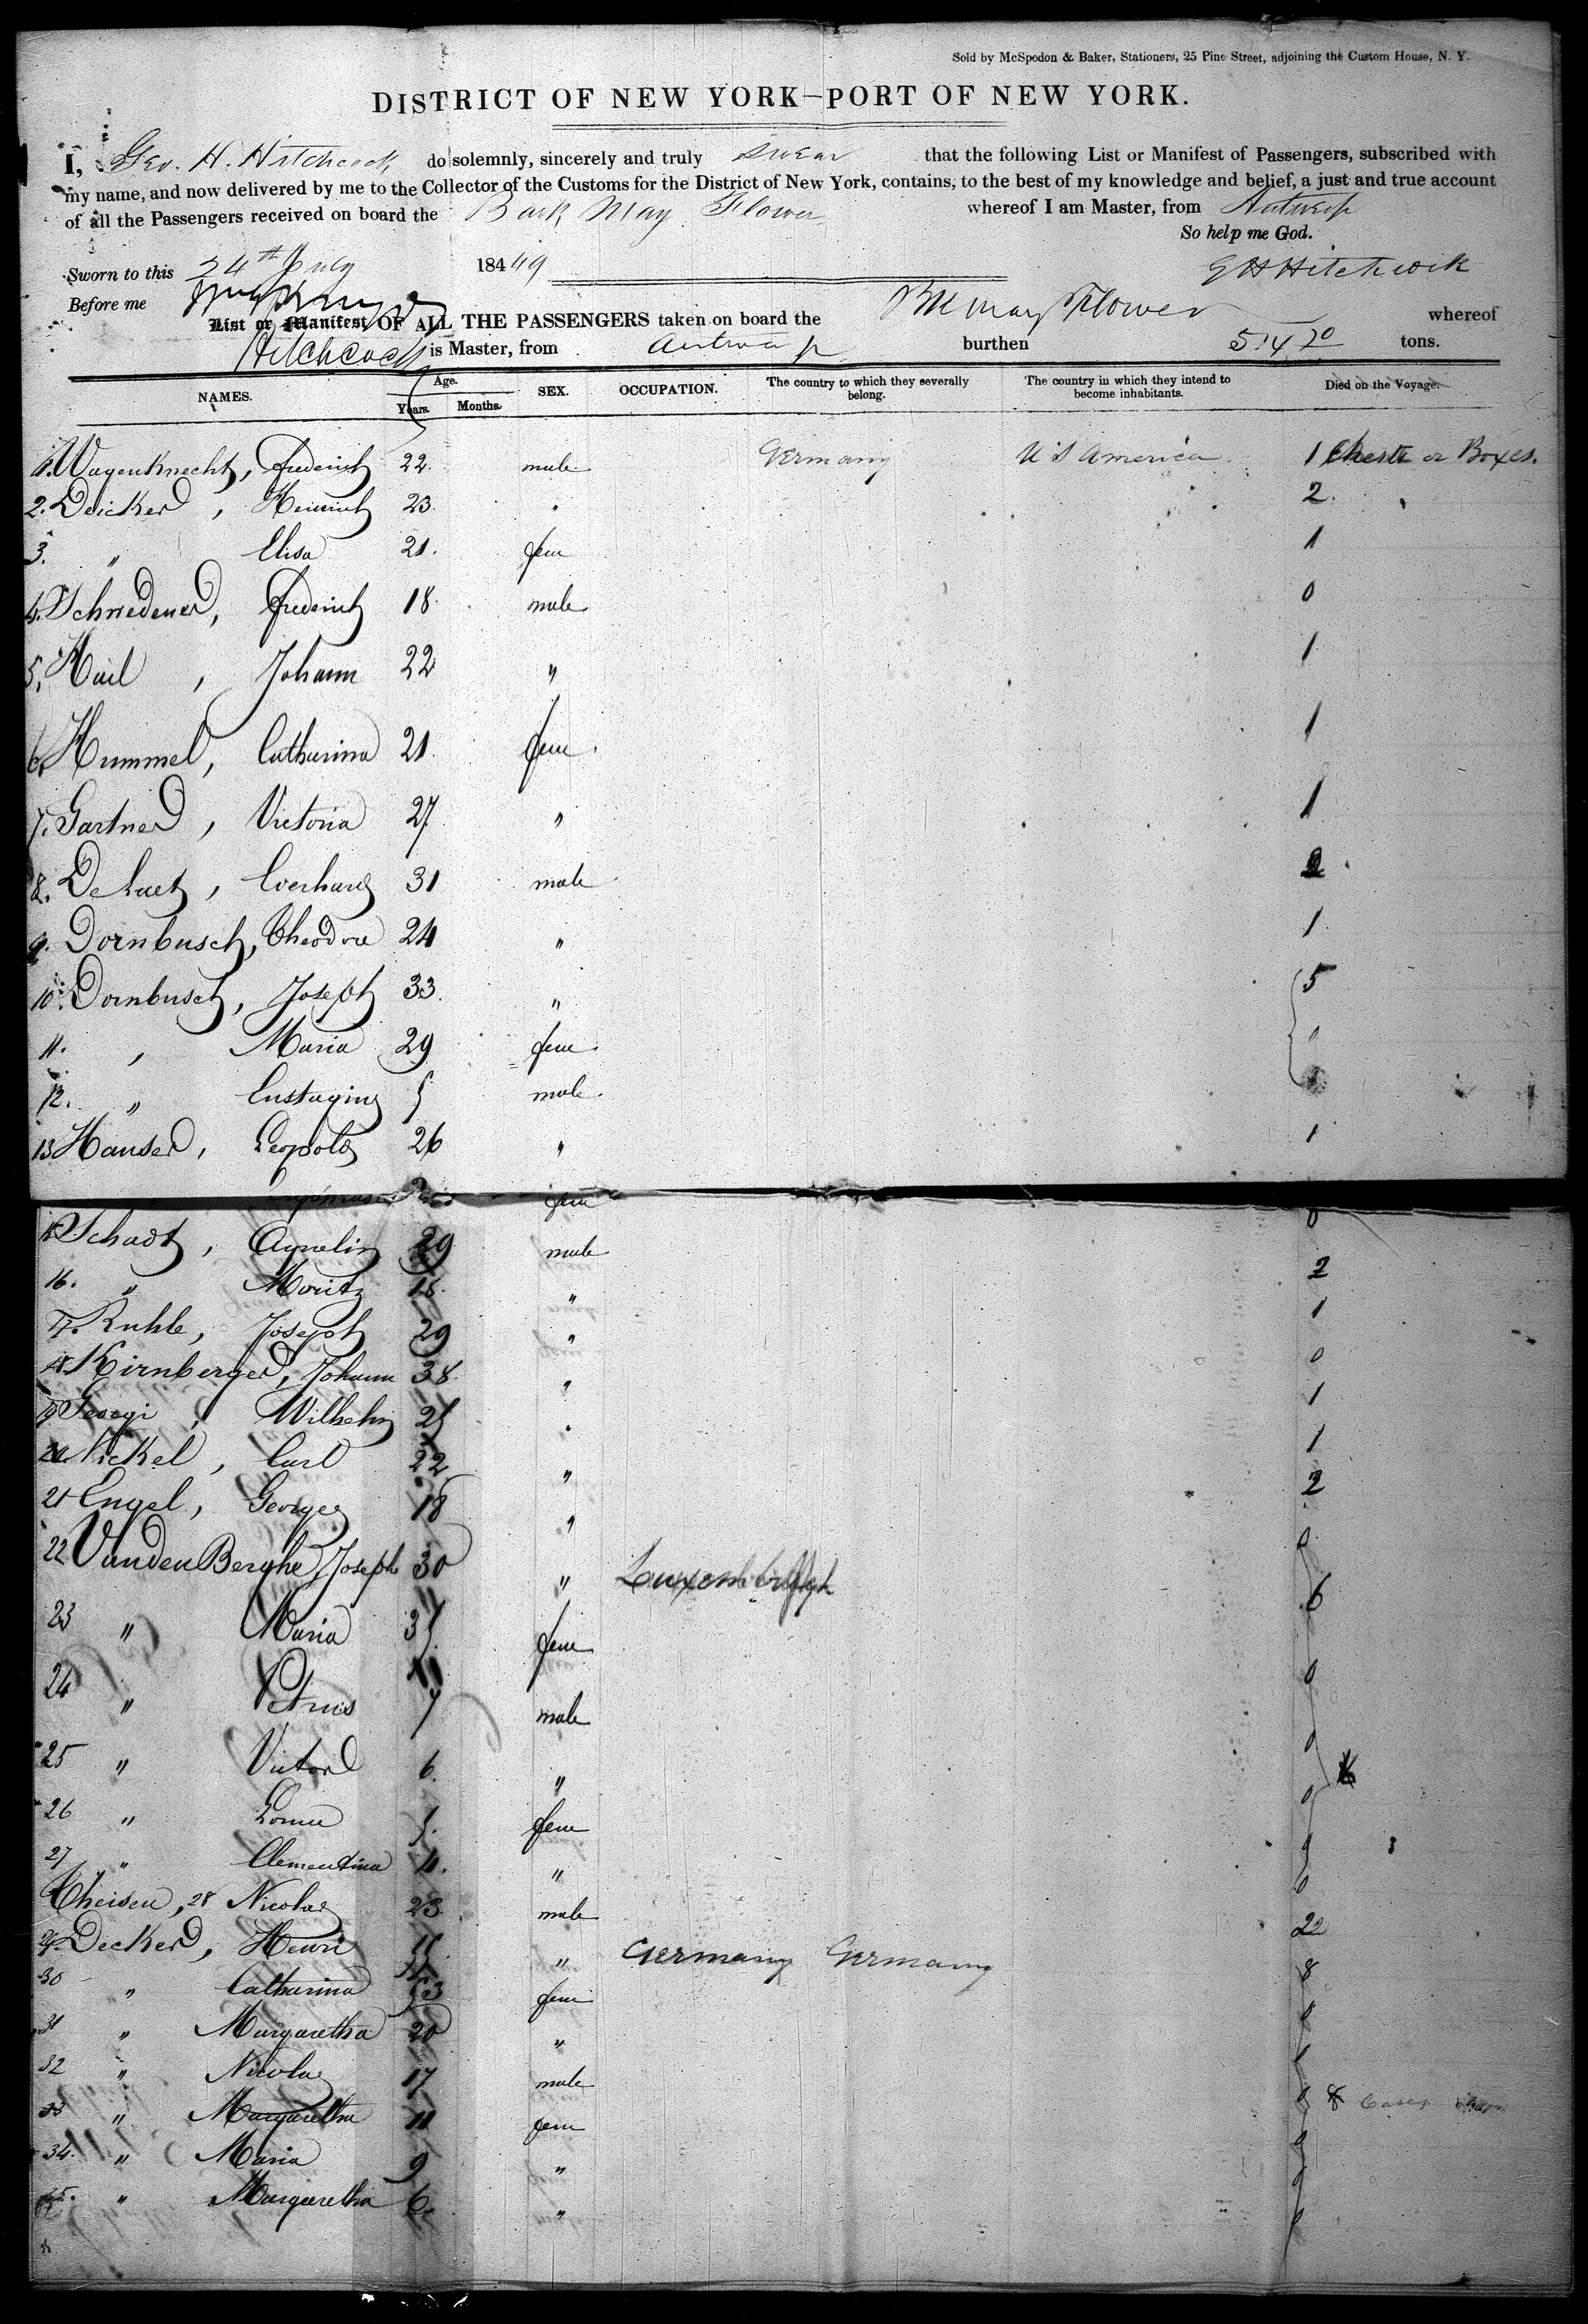 Sold by McSpedon & Baker, Stationers, 25 Pine Street, adjoining the Custom House, N. Y.
DISTRICT OF NEW YORK—PORT OF NEW YORK.
I, Geo. H. Hitchcock do solemnly, sincerely and truly swear that the following List or Manifest of Passengers, subscribed with
my name, and now delivered by me to the Collector of the Customs for the District of New York, contains, to the best of my knowledge and belief, a just and true account
of all the Passengers received on board the Bark May Flower whereof I am Master, from Antwerp
So help me God.
Sworn to this 24th July 184 49 G H Hitchcock
Before me
List or Manifest OF ALL THE PASSENGERS taken on board the Bk May Flower whereof
Hitchcock is Master, from Antwerp burthen 514 70 tons.
NAMES. Age. Years. Months. SEX. OCCUPATION. The country to which they severally belong. The country in which they intend to become inhabitants. Died on the Voyage.
1. Wagenknecht, Frederich 22. male Germany U S America 1 Chests or Boxes.
2. Deicker, Heinrich 23. " 2.
3. " Elisa 21. fem 1
4. Schriedener, Frederich 18. male 0
5. Hail, Johann 22 " 1
6. Hummel, Catharina 21. fem. 1
7. Gartner, Victoria 27. " 1
8. De Laet, Everhard 31 male 2
9. Dornbusch, Theodore 24 " 1
10. Dornbusch, Joseph 33. " 5
11. " Maria 29 fem. 0
12. " male.
13 Hauser, Leopold 26 " 1
fem 0
15 Schadt, 29 male 2
16. " Moritz 18. " 1
17. Ruhle, Joseph 29 " 0
18. Kirnberger, Johann 38. " 1
19 Georgi, Wilhelm 25 " 1
20. Nickel, Carl 22 " 2
21 Engel, George 18 " 0
22 Vanden Berghe, Joseph 30 " Luxemburgh 6
23 " Maria 35. fem 0
24 " Petrus 7 male 0
25 " Victor 6. " 0
26 " 5. fem 0
27 " Clementina 4. " 0
Theisen, 28 Nicolas 23. male 2
29. Decker, Henri " Germany Germany 8
30 " Catharina 53 fem 0
31 " Margaretha 20 "
32 " Nicolas 17 male 0 8 Cases
33 " Margaretha 11 fem 0
34. " Maria 9 " 0
35. " Margaretha 6. " 0